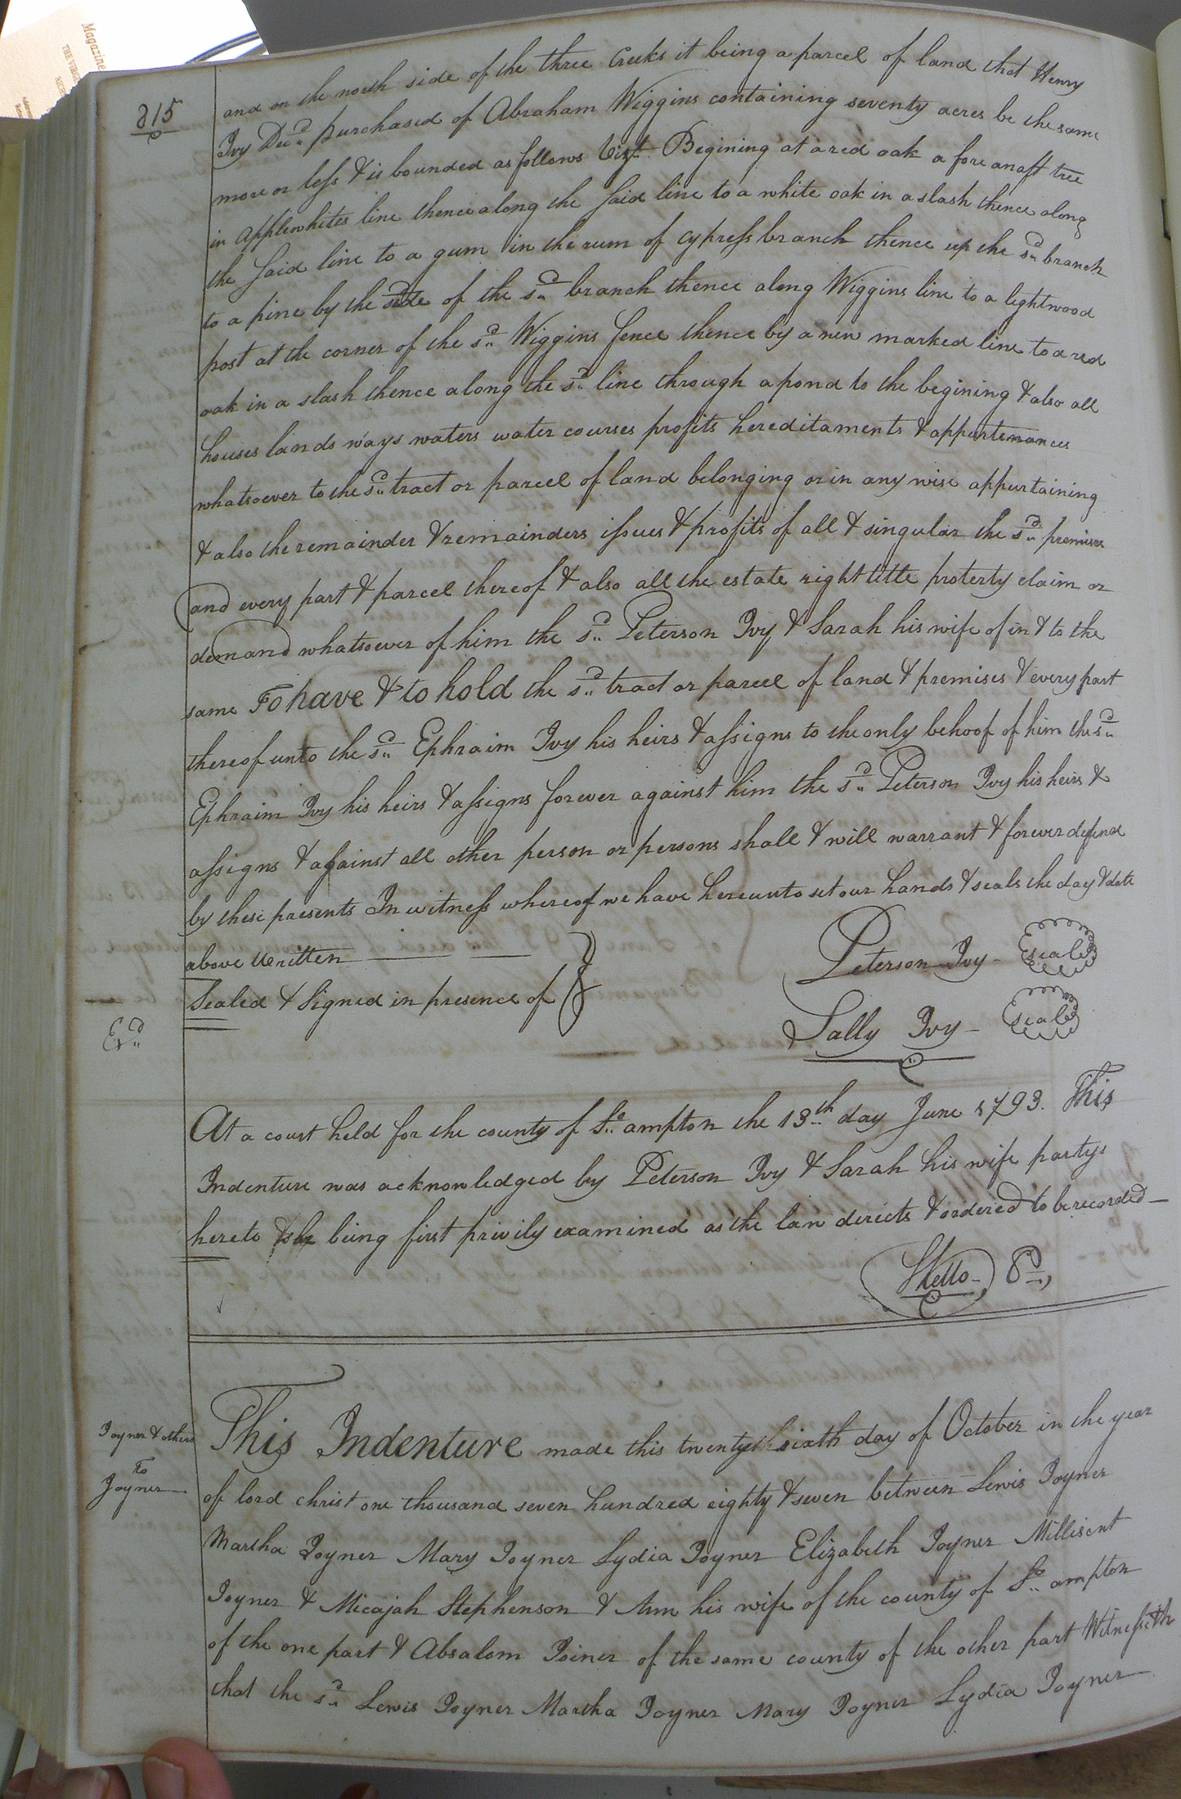 Magazine
815
and on the north side of the three Creeks it being a parcel of land that Henry
Ivy Decd. purchased of Abraham Wiggins containing seventy acres be the same
more or less & is bounded as follows Vizt. Begining at a red oak a fore anaft tree
in Applewhites line thence along the said line to a white oak in a slash thence along
the said line to a gum in the rum of cypress branch thence up the sd. branch
to a pine by the side of the sd. branch thence along Wiggins line to a lightwood
post at the corner of the sd. Wiggins fence thence by a new marked line to a red
oak in a slash thence along the sd. line through a pond to the begining & also all
houses lands ways waters water courses profits hereditaments & appurtenances
whatsoever to the sd. tract or parcel of land belonging or in any wise appurtaining
& also the remainder & remainders issues & profits of all & singular the sd. premises
and every part & parcel thereof & also all the estate right title proterty claim or
demand whatsoever of him the sd. Peterson Ivy & Sarah his wife of in & to the
same To have & to hold the sd. tract or parcel of land & premises & every part
thereof unto the sd. Ephraim Ivy his heirs & assigns to the only behoof of him the sd.
Ephraim Ivy his heirs & assigns forever against him the sd. Peterson Ivy his heirs &
assigns & against all other person or persons shall & will warrant & forever defend
by these presents In witness whereof we have hereunto set our hands & seals the day & date
above Written
Sealed & Signed in presence of
Peterson Ivy - seal
Sally Ivy - seal
Exd.
At a court held for the county of So. ampton the 13th day June 1793. This
Indenture was acknowledged by Peterson Ivy & Sarah his wife partys
hereto she being first privily examined as the law directs & ordered to be recorded
Joyner & others
To
Joyner
This Indenture made this twenty sixth day of October in the year
of lord christ one thousand seven hundred eighty & seven between Lewis Joyner
Martha Joyner Mary Joyner Lydia Joyner Elizabeth Joyner Millisent
Joyner & Micajah Stephenson & Ann his wife of the county of So. ampton
of the one part & Absalom Joiner of the same county of the other part Witnesseth
that the sd. Lewis Joyner Martha Joyner Mary Joyner Lydia Joyner